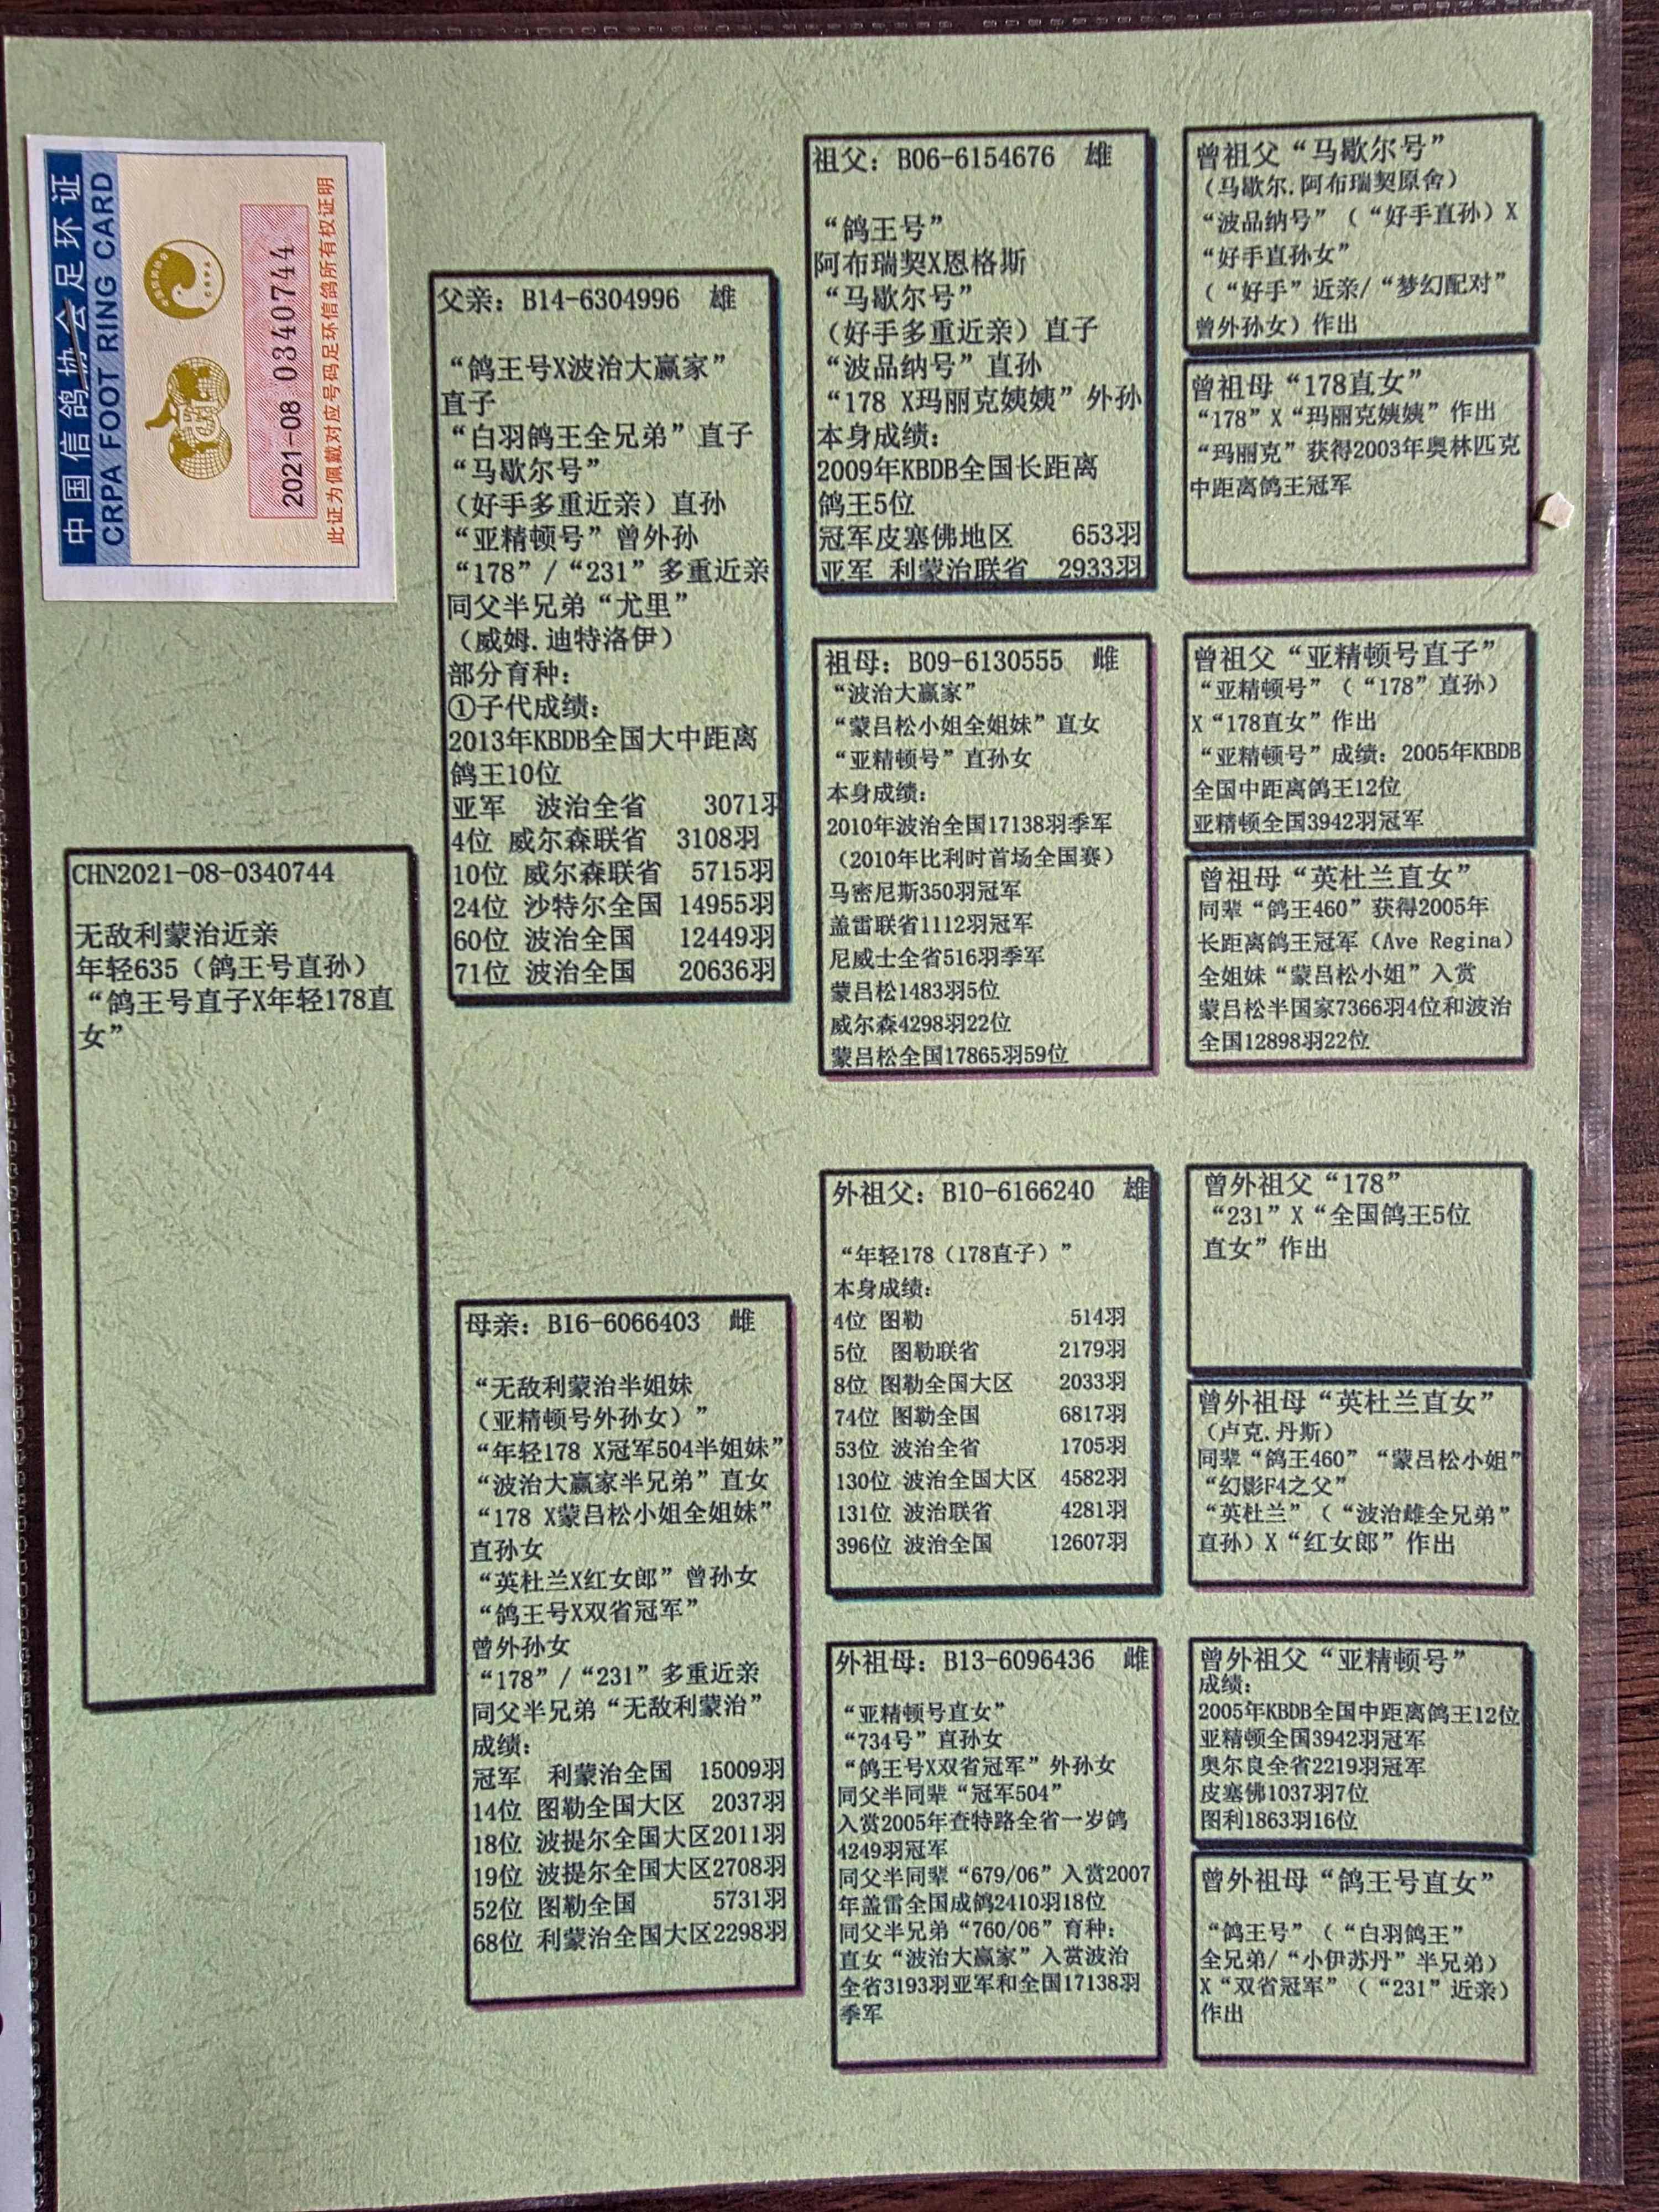 中国信鸽协会足环证
CRPA FOOT RING CARD
2021-08 0340744
此证为佩戴对应号码足环信鸽所有权证明
CHN2021-08-0340744
无敌利蒙治近亲
年轻635（鸽王号直孙）
“鸽王号直子X年轻178直
女”
父亲：B14-6304996 雄
“鸽王号X波治大赢家”
直子
“白羽鸽王全兄弟”直子
“马歇尔号”
（好手多重近亲）直孙
“亚精顿号”曾外孙
“178”/“231”多重近亲
同父半兄弟“尤里”
（威姆.迪特洛伊）
部分育种：
①子代成绩：
2013年KBDB全国大中距离
鸽王10位
亚军 波治全省 3071羽
4位 威尔森联省 3108羽
10位 威尔森联省 5715羽
24位 沙特尔全国 14955羽
60位 波治全国 12449羽
71位 波治全国 20636羽
母亲：B16-6066403 雌
“无敌利蒙治半姐妹
（亚精顿号外孙女）”
“年轻178 X冠军504半姐妹”
“波治大赢家半兄弟”直女
“178 X蒙吕松小姐全姐妹”
直孙女
“英杜兰X红女郎”曾孙女
“鸽王号X双省冠军”
曾外孙女
“178”/“231”多重近亲
同父半兄弟“无敌利蒙治”
成绩：
冠军 利蒙治全国 15009羽
14位 图勒全国大区 2037羽
18位 波提尔全国大区2011羽
19位 波提尔全国大区2708羽
52位 图勒全国 5731羽
68位 利蒙治全国大区2298羽
祖父：B06-6154676 雄
“鸽王号”
阿布瑞契X恩格斯
“马歇尔号”
（好手多重近亲）直子
“波品纳号”直孙
“178 X玛丽克姨姨”外孙
本身成绩：
2009年KBDB全国长距离
鸽王5位
冠军皮塞佛地区 653羽
亚军 利蒙治联省 2933羽
祖母：B09-6130555 雌
“波治大赢家”
“蒙吕松小姐全姐妹”直女
“亚精顿号”直孙女
本身成绩：
2010年波治全国17138羽季军
（2010年比利时首场全国赛）
马密尼斯350羽冠军
盖雷联省1112羽冠军
尼威士全省516羽季军
蒙吕松1483羽5位
威尔森4298羽22位
蒙吕松全国17865羽59位
外祖父：B10-6166240 雄
“年轻178（178直子）”
本身成绩：
4位 图勒 514羽
5位 图勒联省 2179羽
8位 图勒全国大区 2033羽
74位 图勒全国 6817羽
53位 波治全省 1705羽
130位 波治全国大区 4582羽
131位 波治联省 4281羽
396位 波治全国 12607羽
外祖母：B13-6096436 雌
“亚精顿号直女”
“734号”直孙女
“鸽王号X双省冠军”外孙女
同父半同辈“冠军504”
入赏2005年查特路全省一岁鸽
4249羽冠军
同父半同辈“679/06”入赏2007
年盖雷全国成鸽2410羽18位
同父半兄弟“760/06”育种：
直女“波治大赢家”入赏波治
全省3193羽亚军和全国17138羽
季军
曾祖父“马歇尔号”
（马歇尔.阿布瑞契原舍）
“波品纳号”（“好手直孙）X
“好手直孙女”
（“好手”近亲/“梦幻配对”
曾外孙女）作出
曾祖母“178直女”
“178”X“玛丽克姨姨”作出
“玛丽克”获得2003年奥林匹克
中距离鸽王冠军
曾祖父“亚精顿号直子”
“亚精顿号”（“178”直孙）
X“178直女”作出
“亚精顿号”成绩：2005年KBDB
全国中距离鸽王12位
亚精顿全国3942羽冠军
曾祖母“英杜兰直女”
同辈“鸽王460”获得2005年
长距离鸽王冠军（Ave Regina）
全姐妹“蒙吕松小姐”入赏
蒙吕松半国家7366羽4位和波治
全国12898羽22位
曾外祖父“178”
“231”X“全国鸽王5位
直女”作出
曾外祖母“英杜兰直女”
（卢克.丹斯）
同辈“鸽王460”“蒙吕松小姐”
“幻影F4之父”
“英杜兰”（“波治雌全兄弟”
直孙）X“红女郎”作出
曾外祖父“亚精顿号”
成绩：
2005年KBDB全国中距离鸽王12位
亚精顿全国3942羽冠军
奥尔良全省2219羽冠军
皮塞佛1037羽7位
图利1863羽16位
曾外祖母“鸽王号直女”
“鸽王号”（“白羽鸽王”
全兄弟/“小伊苏丹”半兄弟）
X“双省冠军”（“231”近亲）
作出